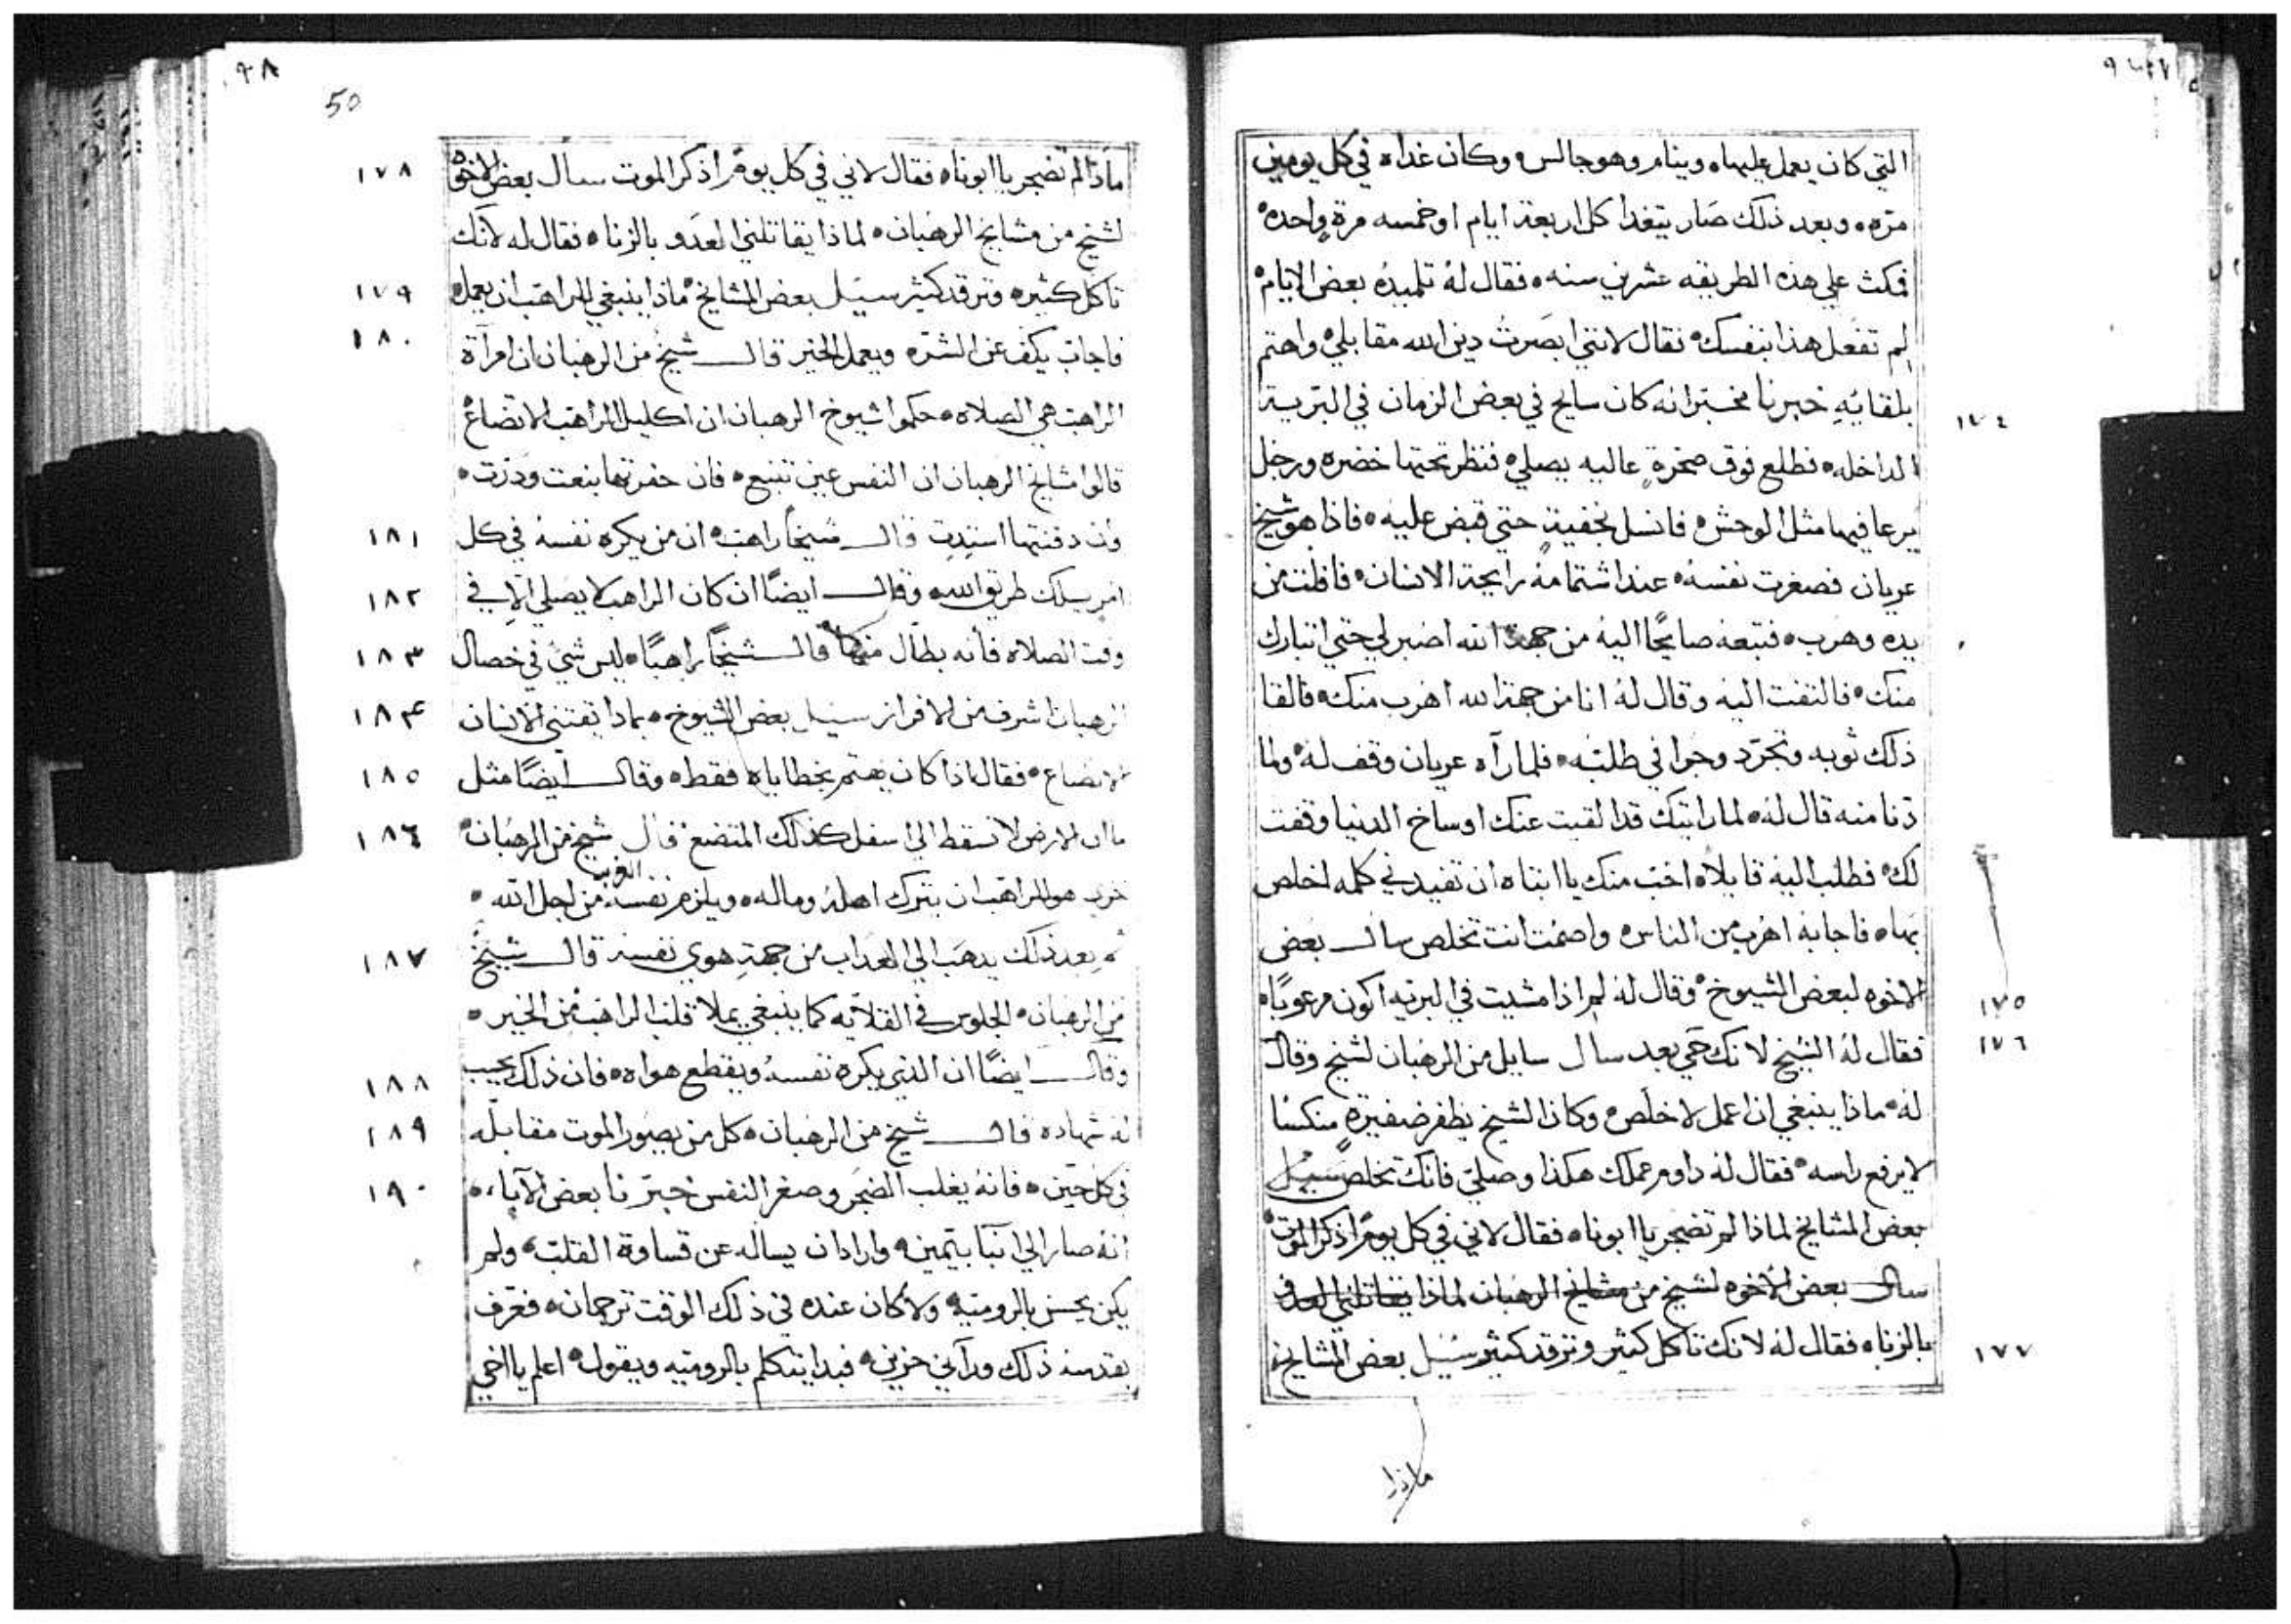 التي كان يعمل عليها ه وينام وهو جالس ه وكان غداه في كل يومين
مره ه وبعد ذلك صار يتغدا كل اربعة ايام او خمسه مرة واحده ه
فمكث علي هذه الطريقه عشرين سنه ه فقال له تلميده بعض الايام ه
لم تفعل هذا بنفسك ه فقال لانني ابصرت دين الله مقابلي ه واهتم
بلقايه خبرنا مخبر انه كان سايح في بعض الزمان في البرية
١٧٤
الداخله ه فطلع فوق صخرة عاليه يصلي ه فنظر تحتها خضره ورجل
يرعا فيها مثل الوحش ه فانسل بخفية حتي قبض عليه ه فاذا هو شيخ
عريان فصغرت نفسه ه عند اشتمامه رايحة الانسان ه فافلت من
يده وهرب ه فتبعه صايحًا اليه من جهة الله اصبر لي حتي اتبارك
منك ه فالتفت اليه وقال له انا من جهة الله اهرب منك ه فالقا
ذلك ثوبه وتجرد وجرا في طلبه ه فلما رآه عريان وقف له ه ولما
دنا منه قال له ه لما رايتك قد القيت عنك اوساخ الدنيا وقفت
لك ه فطلب اليه قايلا ه احب منك يا ابتاه ان تفيدني كلمه اخلص
بها ه فاجابه اهرب من الناس ه واصمت انت تخلص سال بعض
الاخوه لبعض الشيوخ ه وقال له لم اذا مشيت في البريه اكون مرعوبًا ه
١٧٥
فقال له الشيخ لانك حي بعد سال سايل من الرهبان لشيخ وقال
١٧٦
له ه ماذا ينبغي ان اعمل لاخلص ه وكان الشيخ يظفر ضفيرة منكسًا
لا يرفع راسه ه فقال له داوم عملك هكذا وصلي فانك تخلص سيل
بعض المشايخ لماذا لم تضجر يا ابوناه فقال لاني في كل يوم اذكر الموت ه
سال بعض الاخوه لشيخ من مشايخ الرهبان لماذا يقاتلني العدو
بالزنا ه فقال له لانك تاكل كثير وترقد كثير سيل بعض المشايخ ه
١٧٧
ماذا
٩٨
50
ماذا لم تضجر يا ابوناه فقال لاني في كل يوم اذكر الموت سال بعض الاخوه
١٧٨
لشيخ من مشايخ الرهبان ه لماذا يقاتلني العدو بالزنا ه فقال له لانك
تاكل كثيره وترقد كثير سيل بعض المشايخ ه ماذا ينبغي للراهب ان يعمل ه
١٧٩
فاجاب يكف عن الشره ويعمل الخير قال شيخ من الرهبان ان امرآة
١٨٠
الراهب هي الصلاه ه حكموا شيوخ الرهبان ان اكليل الراهب الاتضاع ه
قالوا مشايخ الرهبان ان النفس عين تنبع ه فان حفرتها نبعت ودرت ه
وان دفنتها استدت قال شيخًا راهب ه ان من يكره نفسه في كل
١٨١
امر يسلك طريق الله ه وقال ايضًا ان كان الراهب لا يصلي الا في
١٨٢
وقت الصلاه فأنه بطال منها قال شيخًا راهبًا ه ليس شي في خصال
١٨٣
الرهبان اشرف من الافراز سيل بعض الشيوخ ه بماذا يقتني الانسان
١٨٤
الاتضاع ه فقال اذا كان يهتم بخطاياه فقط ه وقال ايضًا مثل
١٨٥
ما ان الارض لا تسقط الي اسفل كذلك المتضع قال شيخ من الرهبان ه
١٨٦
هو الراهب ان يترك اهله وماله ه ويلزم نفسه من اجل الله ه
ثم بعد ذلك يدهب الي العداب من جهة هوي نفسه قال شيخ
١٨٧
من الرهبان ه الجلوس في القلايه كما ينبغي يملا قلب الراهب من الخير ه
وقال ايضًا ان الذي يكره نفسه ويقطع هواه ه فان ذلك يحيب
١٨٨
له شهاده قال شيخ من الرهبان ه كل من يصور الموت مقابله
١٨٩
في كل حين ه فانه يغلب الضجر وصغر النفس خبرنا بعض الآباء ه
١٩٠
انه صار الي انبا بيمين ه واراد ان يساله عن قساوة القلب ه ولم
يكن يحسن بالروميه ه ولا كان عنده في ذلك الوقت ترجمان ه فعرف
ذلك ورآني حزين ه فبدا يتكلم بالروميه ويقول ه اعلم يا اخي